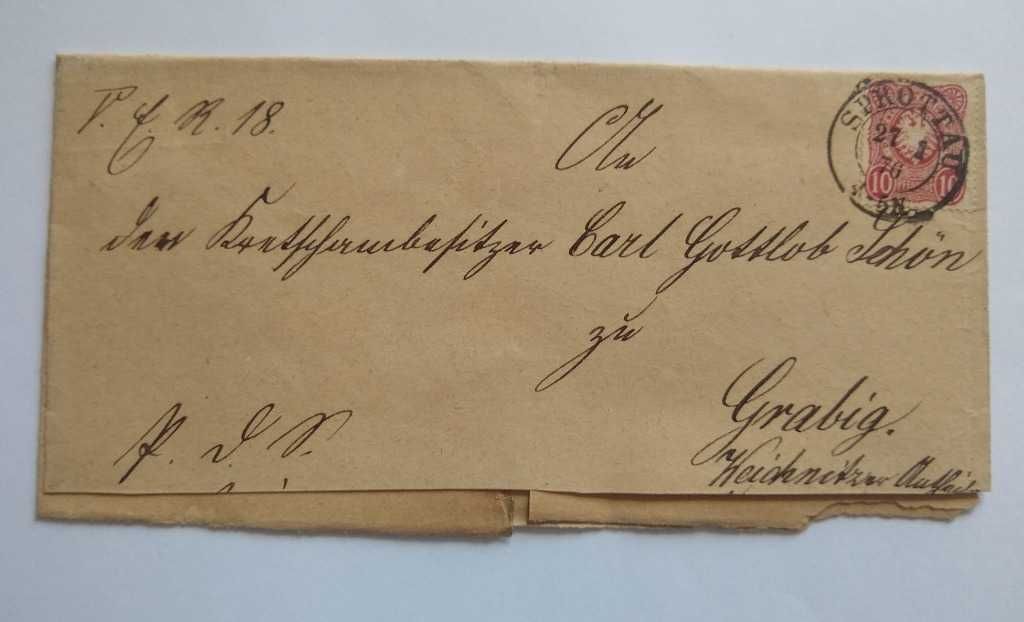 P. E. R. 18.
An
den Kretschambesitzer Carl Gottlob Schön
zu
Grabig.
Weichnitzer Antheil
P. d. S.
SPROTTAU
27 1
76
10 10